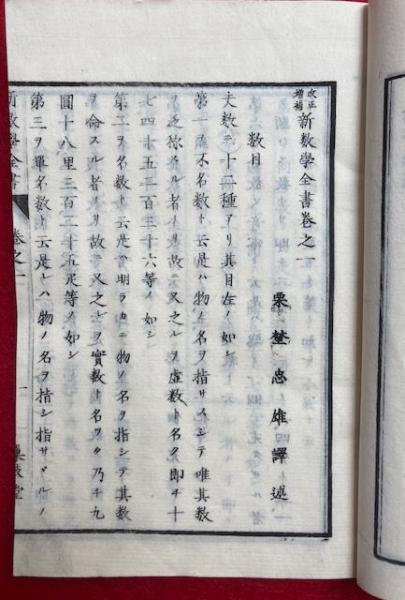 改正増補 新数学全書巻之一
栗埜忠雄譯述
数目
夫数ニ十二種アリ其目左ノ如シ
第一ヲ不名数ト云是ハ物ノ名ヲ指サスシテ唯其数
ヲ泛称スル者ナリ故ニ又之レヲ虚数ト名ク即チ十
七四十五二百三十六等ノ如シ
第二ヲ名数ト云是ハ明ラカニ物ノ名ヲ指シテ其数
ヲ論スル者ナリ故ニ又之レヲ實数ト名ク乃チ九
圓十八里三百二十五疋等ノ如シ
第三ヲ單名数ト云是レハ物ノ名ヲ指シ指サヾルノ
新数學全書 巻之一 一